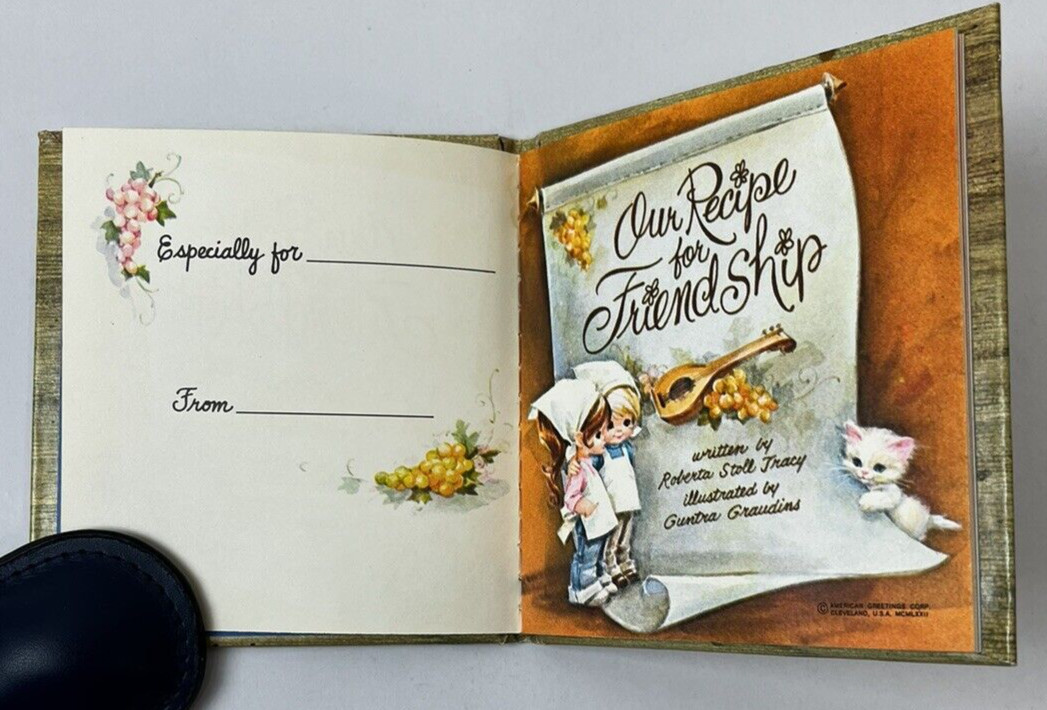 Especially for
From
Our Recipe
for
Friendship
written by
Roberta Stoll Tracy
illustrated by
Guntra Graudins
© AMERICAN GREETINGS CORP.
CLEVELAND, U.S.A. MCMLXXII